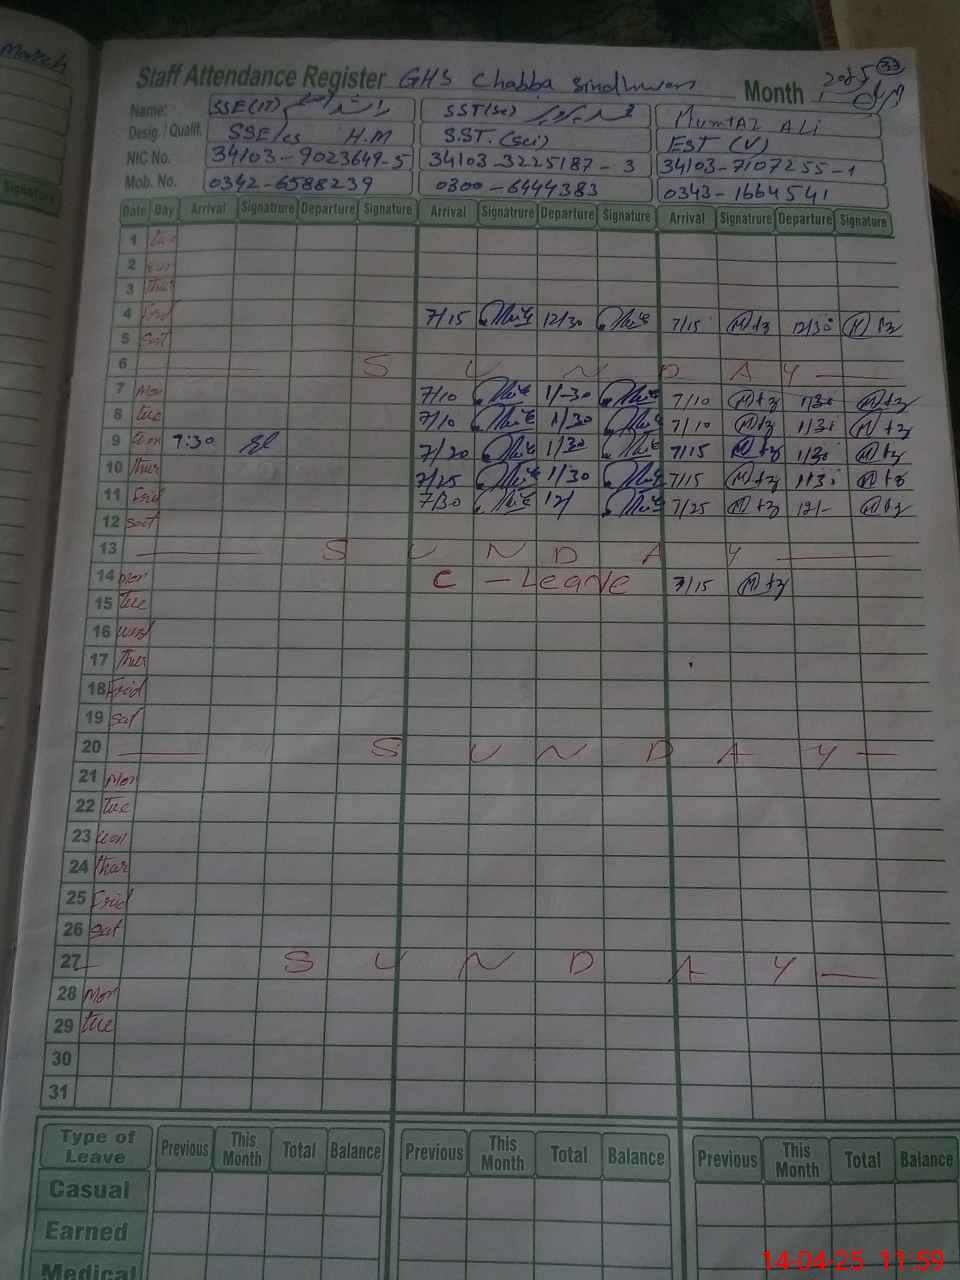 March
Staff Attendance Register GHS Chabba Sindhwan Month 2025 33
Name: SSE(IT) SST(Sc) Mumtaz Ali
Desig. / Qualif. SSE/cs H.M S.S.T. (Sci) EST (V)
NIC No. 34103-9023649-5 34103-3225187-3 34103-7107255-1
Mob. No. 0342-6588239 0300-6444383 0343-1664541
Signature
Date Day Arrival Signatrure Departure Signature Arrival Signatrure Departure Signature Arrival Signatrure Departure Signature
1 tue
2
3 thur
4 Frid 7/15 12/30 7/15 12/30
5 sat
6 S U N D A Y
7 Mon 7/10 1/-30 7/10 1/30
8 tue 7/10 1/30 7/10 1/30
9 wen 7:30 7/20 1/30 7/15 1/30
10 thur 7/25 1/30 7/15 1/30
11 Frid 7/30 12/ 7/25 12/-
12 sat
13 S U N D A Y
14 Mon C - Leave 7/15
15 tue
16 wed
17 thur
18 Frid
19 sat
20 S U N D A Y
21 Mon
22 tue
23 wen
24 thar
25 Frid
26 sat
27 S U N D A Y
28 Mon
29 tue
30
31
Type of Leave Previous This Month Total Balance Previous This Month Total Balance Previous This Month Total Balance
Casual
Earned
Medical
14-04-25 11:59